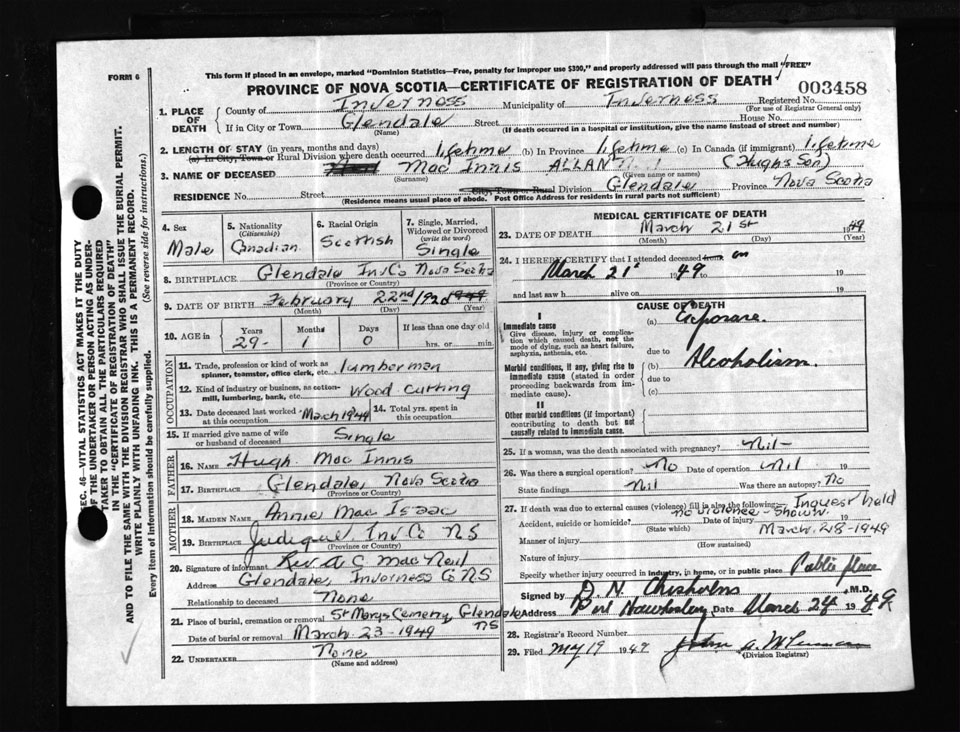 FORM 6
This form if placed in an envelope, marked "Dominion Statistics—Free, penalty for improper use $300," and properly addressed will pass through the mail "FREE"
PROVINCE OF NOVA SCOTIA—CERTIFICATE OF REGISTRATION OF DEATH
003458
1. PLACE OF DEATH
County of Inverness Municipality of Inverness Registered No.
(For use of Registrar General only)
If in City or Town Glendale Street House No.
(Name) (If death occurred in a hospital or institution, give the name instead of street and number)
2. LENGTH OF STAY (in years, months and days)
(a) In City, Town or Rural Division where death occurred lifetime (b) In Province lifetime (c) In Canada (if immigrant) lifetime
3. NAME OF DECEASED Mac Innis ALLAN (Hughs Son)
(Surname) (Given name or names)
RESIDENCE No. Street City, Town or Rural Division Glendale Province Nova Scotia
(Residence means usual place of abode. Post Office Address for residents in rural parts not sufficient)
4. Sex Male
5. Nationality (Citizenship) Canadian
6. Racial Origin Scottish
7. Single, Married, Widowed or Divorced (write the word) Single
8. BIRTHPLACE Glendale Inv Co Nova Scotia
(Province or Country)
9. DATE OF BIRTH February 22nd 1920 1949
(Month) (Day) (Year)
10. AGE in Years Months Days If less than one day old
29- 1 0 hrs. or min.
OCCUPATION
11. Trade, profession or kind of work as spinner, teamster, office clerk, etc. lumberman
12. Kind of industry or business, as cotton-mill, lumbering, bank, etc. Wood cutting
13. Date deceased last worked at this occupation March 1949
14. Total yrs. spent in this occupation
15. If married give name of wife or husband of deceased Single
FATHER
16. NAME Hugh Mac Innis
17. BIRTHPLACE Glendale, Nova Scotia
(Province or Country)
MOTHER
18. MAIDEN NAME Annie Mac Isaac
19. BIRTHPLACE Judique, Inv Co NS
(Province or Country)
20. Signature of informant Rev. A C Mac Neil
Address Glendale, Inverness Co NS
Relationship to deceased None
21. Place of burial, cremation or removal St Marys Cemetry, Glendale NS
Date of burial or removal March 23-1949
22. UNDERTAKER None
(Name and address)
MEDICAL CERTIFICATE OF DEATH
23. DATE OF DEATH March 21st 1949
(Month) (Day) (Year)
24. I HEREBY CERTIFY that I attended deceased from on
March 21st 1949 to 19
and last saw h alive on 19
CAUSE OF DEATH
I
Immediate cause
Give disease, injury or complication which caused death, not the mode of dying, such as heart failure, asphyxia, asthenia, etc.
(a) Exposure
due to
Morbid conditions, if any, giving rise to immediate cause (stated in order proceeding backwards from immediate cause).
(b) Alcoholism
due to
(c)
II
Other morbid conditions (if important) contributing to death but not causally related to immediate cause.
25. If a woman, was the death associated with pregnancy? Nil-
26. Was there a surgical operation? No Date of operation Nil 19
State findings Nil Was there an autopsy? No
27. If death was due to external causes (violence) fill in also the following: Inquest held
no violence-shown
Accident, suicide or homicide? Date of injury 19
(State which) March-28-1949
Manner of injury
(How sustained)
Nature of injury
Specify whether injury occurred in industry, in home, or in public place Public place
Signed by D. N. Chisholm M.D.
Address Port Hawkesbury Date March 24 1949
28. Registrar's Record Number
29. Filed May 19 1949
(Division Registrar)
SEC. 46—VITAL STATISTICS ACT MAKES IT THE DUTY
OF THE UNDERTAKER OR PERSON ACTING AS UNDER-
TAKER TO OBTAIN ALL THE PARTICULARS REQUIRED
IN THE "CERTIFICATE OF REGISTRATION OF DEATH"
AND TO FILE THE SAME WITH THE DIVISION REGISTRAR WHO SHALL ISSUE THE BURIAL PERMIT.
WRITE PLAINLY WITH UNFADING INK. THIS IS A PERMANENT RECORD.
Every item of information should be carefully supplied. (See reverse side for instructions.)